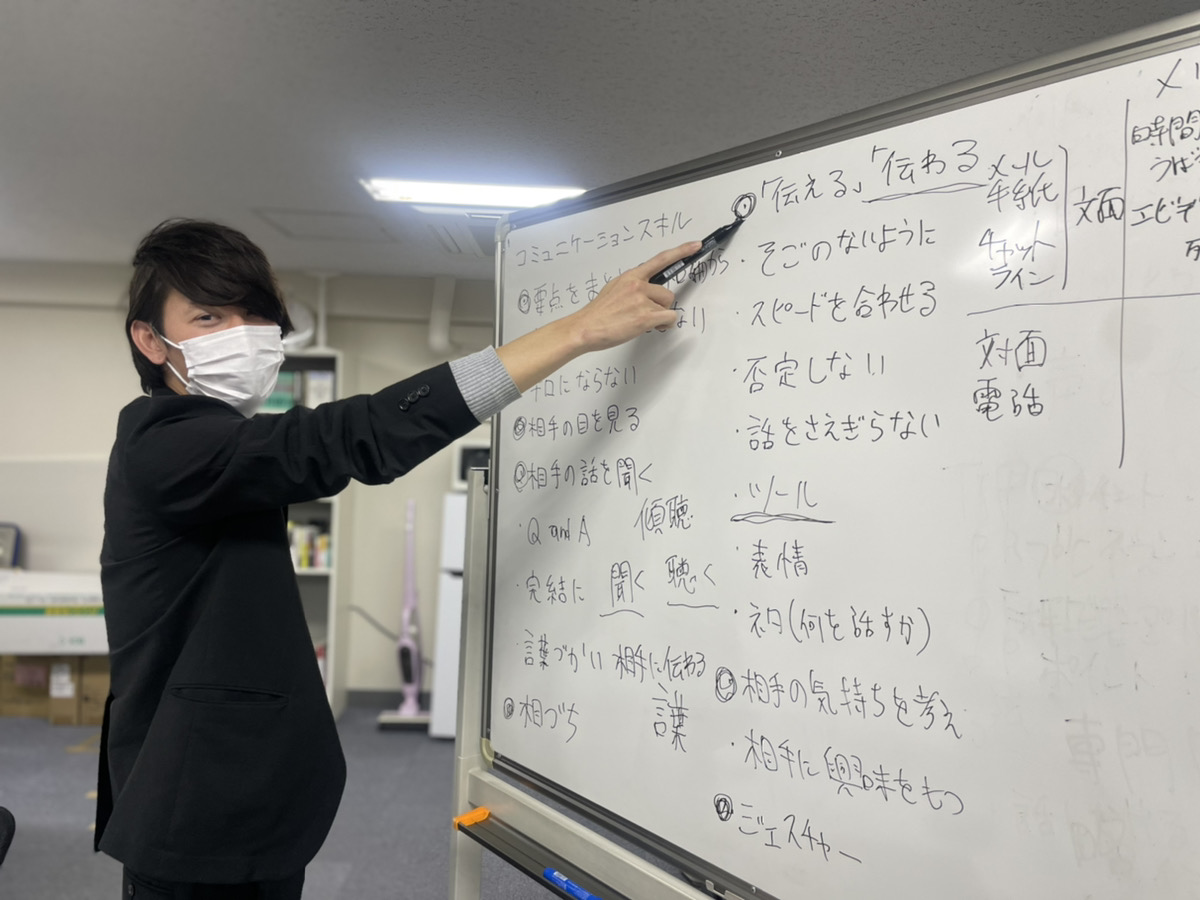 コミュニケーションスキル
◎要点をまと
から
ない
・早口にならない
◎相手の目を見る
◎相手の話を聞く
・Q and A 傾聴
・完結に 聞く 聴く
言葉づかい 相手に伝わる
言葉
◎相づち
◎「伝える」「伝わる
・そごのないように
・スピードを合わせる
・否定しない
・話をさえぎらない
・ツール
・表情
・ネタ(何を話すか)
◎相手の気持ちを考え
・相手に興味をもつ
◎ジェスチャー
メール
手紙
チャット
ライン
文面
対面
電話
メリ
時間
うば
エビデ